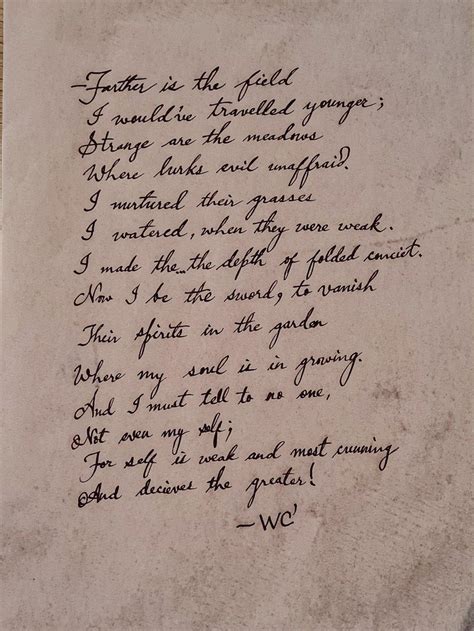 -Farther is the field
I would've travelled younger;
Strange are the meadows
Where lurks evil unaffraid.
I nurtured their grasses
I watered, when they were weak.
I made the the depth of folded conciet.
Now I be the sword, to vanish
Their spirits in the garden
Where my soul is in growing.
And I must tell to no one,
Not even my self;
For self is weak and most cunning
And decieves the greater!
-WC'